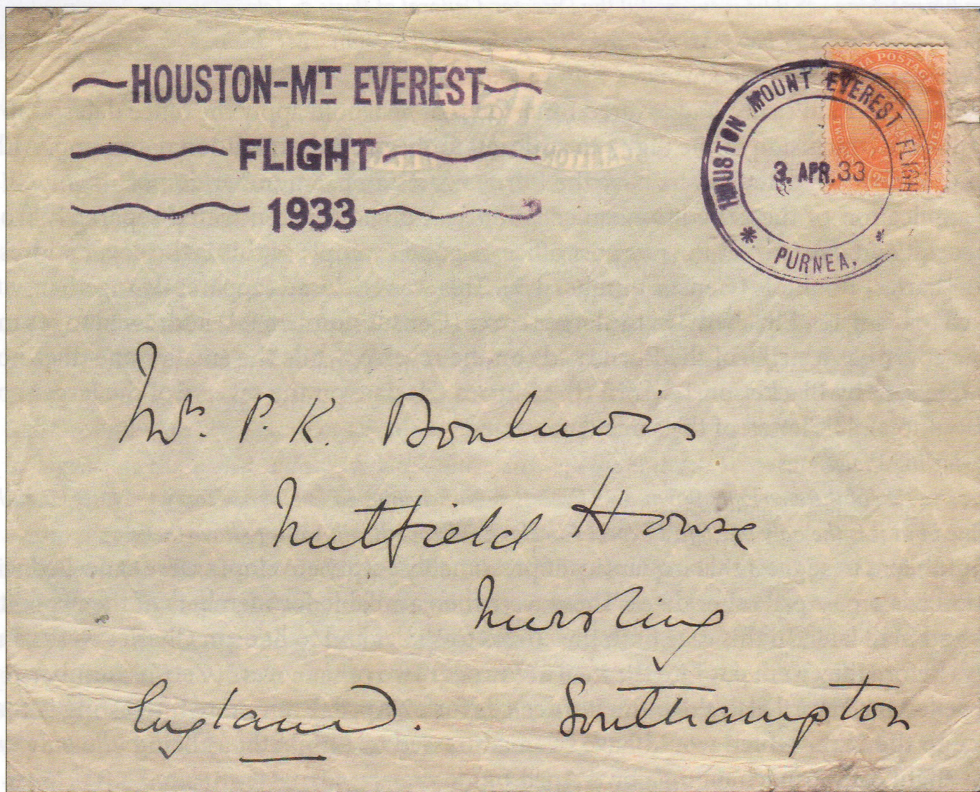 HOUSTON-MT EVEREST
FLIGHT
1933
HOUSTON MOUNT EVEREST FLIGH
3. APR. 33
PURNEA.
POSTAGE
P. K.
Nutfield House
Nursling
England. Southampton